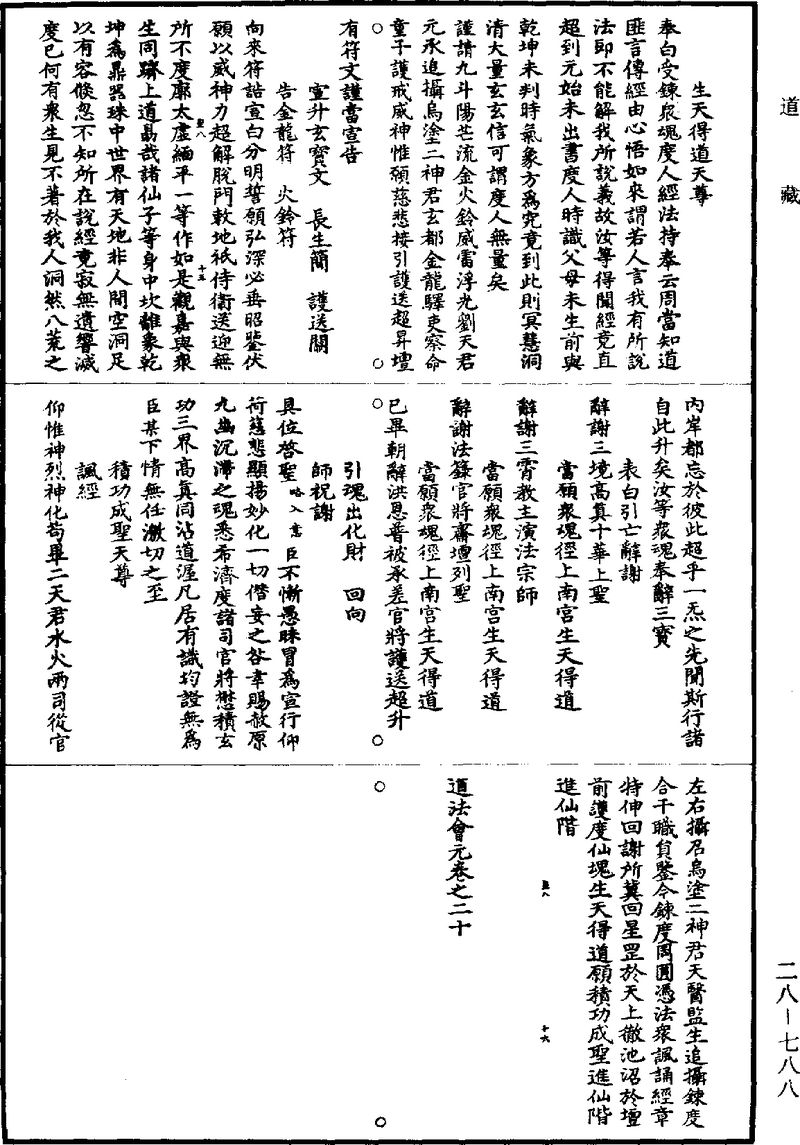 道藏
生天得道天尊
奉白受鍊衆魂度人經法持奉云周當知道
匪言傳經由心悟如來謂若人言我有所說
法即不能解我所說義故汝等得聞經竟直
超到元始未出書度人時識父母未生前與
乾坤未判時氣象方爲究竟到此則冥慧洞
清大量玄玄信可謂度人無量矣
謹請九斗陽芒流金火鈴威雷浮光劉天君
元承追攝烏塗二神君玄都金龍驛吏察命
童子護戒威神惟願慈悲接引護送超昇壇
有符文謹當宣告
宣升玄寶文 長生簡 護送關
告金龍符 火鈴符
向來符誥宣白分明誓願弘深必垂昭鑒伏
願以威神力超解脫門敕地祇侍衛送迎無
所不度廓太虛緬平一等作如是觀嘉與衆
生同躋上道勗哉諸仙子等身中坎離象乾
坤爲鼎器珠中世界有天地非人間空洞足
以有容倐忽不知所在說經竟寂無遺響滅
度已何有衆生見不著於我人洞然八荒之
內岸都忘於彼此超乎一炁之先聞斯行諸
自此升矣汝等衆魂奉辭三寶
表白引亡辭謝
辭謝三境高真十華上聖
當願衆魂徑上南宮生天得道
辭謝三霄教主演法宗師
當願衆魂徑上南宮生天得道
辭謝法籙官將齋壇列聖
當願衆魂徑上南宮生天得道
已畢朝辭洪恩普被承差官將護送超升
引魂出化財 回向
師祝謝
具位啓聖略入意臣不慚愚昧冒爲宣行仰
荷慈悲顯揚妙化一切僭妄之咎幸賜赦原
九幽沉滯之魂悉希濟度諸司官將懋積玄
功三界高真同沾道渥凡居有識均證無爲
臣某下情無任激切之至
積功成聖天尊
諷經
仰惟神烈神化苟畢二天君水火兩司從官
左右攝召烏塗二神君天醫監生追攝鍊度
合干職員鑒今鍊度周圓憑法衆諷誦經章
特伸回謝所冀回星罡於天上徹池沼於壇
前護度仙塊生天得道願積功成聖進仙階
進仙階
道法會元卷之二十
二八－七八八